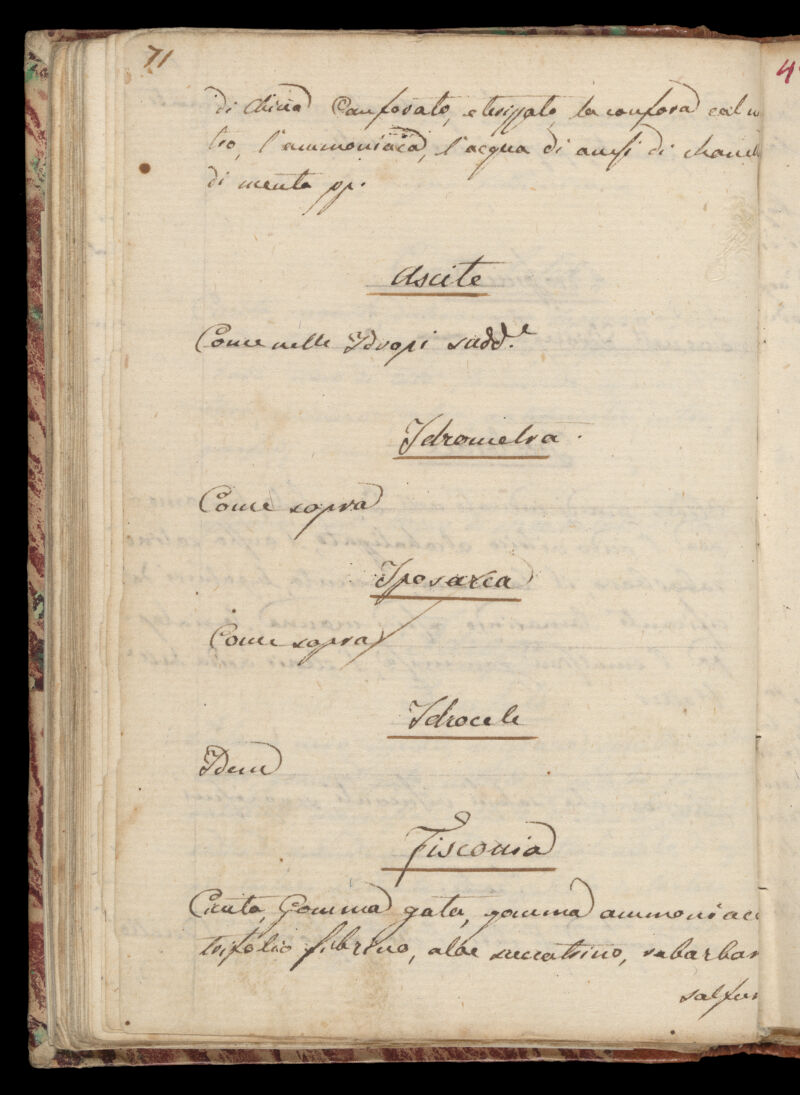 71
di china Canforato, e la confora col
tro, l'ammoniaca, l'acqua di anisi di
di menta pp.
Ascite
Come nelle Idropi sudd.e
Idrometra.
Come sopra
Iposarca
Come sopra
Idrocele
Idem
Fisconia
Cicuta, Gomma gota, gomma ammoniac
trifolio fibrino, aloe succotrino, rabarbar